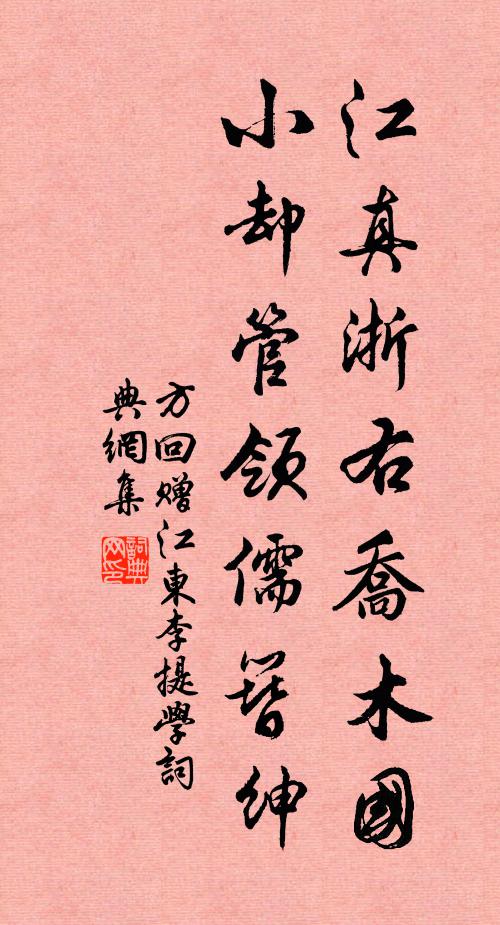 江真浙右喬木國
小却管領儒簪紳
方回贈江東李提學詞
典網集
詞典
网印